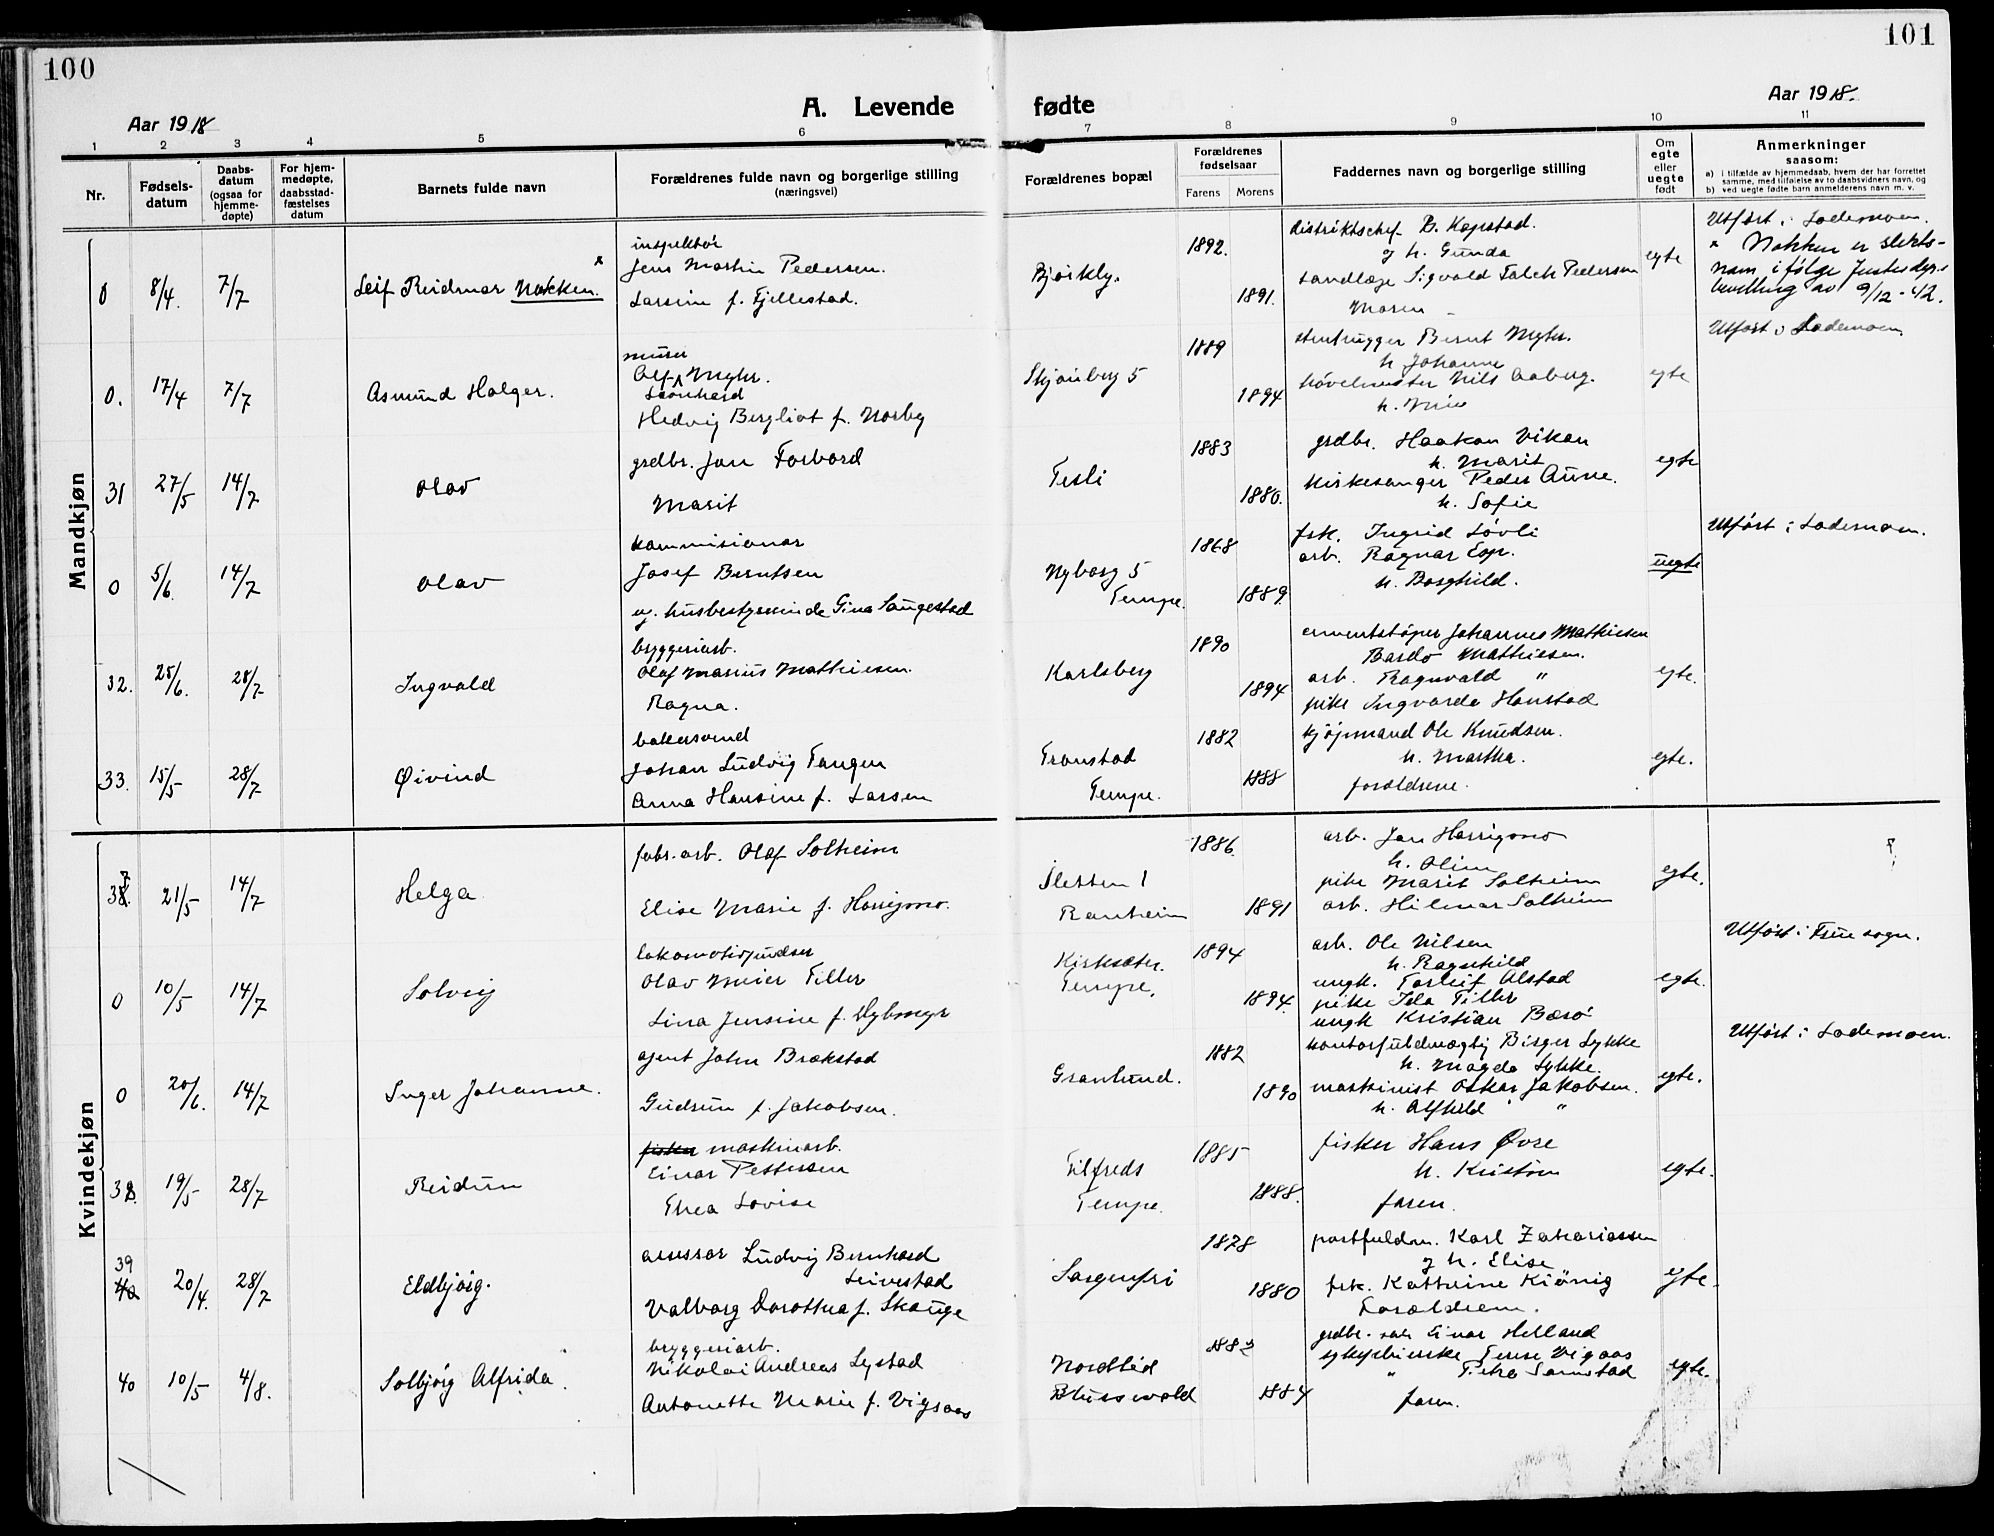 100
101
A. Levende fødte
Aar 1918
Aar 1918.
1 2 3 4 5 6 7 8 9 10 11
Nr.
Fødsels-
datum
Daabs-
datum
(ogsaa for
hjemme-
døpte)
For hjem-
medøpte,
daabsstad-
fæstelses
datum
Barnets fulde navn
Forældrenes fulde navn og borgerlige stilling
(næringsvei)
Forældrenes bopæl
Forældrenes
fødselsaar
Farens Morens
Faddernes navn og borgerlige stilling
Om
egte
eller
uegte
født
Anmerkninger
saasom:
a) i tilfælde av hjemmedaab, hvem der har forrettet
samme, med tilføielse av to daabsvidners navn, og
b) ved uegte fødte barn anmelderens navn m. v.
Mandkjøn
0 8/4. 7/7 Leif Reidmar Nokken. x
inspektør
Jens Martin Pedersen.
Larsine f. Fjellestad.
Bjørkly.
1892.
1891.
distriktschef B. Kopstad.
og h. Gunda
tandlæge Sigvald Falck Pedersen
Maren
egte
Utført i Lademoen.
x Nokken er slekts-
navn ifølge Justisdep.s
bevilling av 9/12-42.
0. 17/4 7/7 Asmund Holger.
murer
Alf Myhr.
Leonhard
Hedvig Bergliot f. Norby
Skjønberg 5
1889
1894
stenhugger Bernt Myhr.
h. Johanne
høvelmester Nils Aaberg.
h. Mine
egte
Utført i Lademoen.
31 27/5 14/7 Olav
grdbr. Jon Forbord
Marit
Tesli
1883
1880.
grdbr. Haakon Vikan
h. Marit
kirkesanger Peder Aune.
h. Sofie
egte
0 5/6. 14/7 Olav
kommisionær
Josef Berntsen
og husbestyrerinde Gina Saugestad
Nyborg 5
Tempe.
1868
1889.
frk. Ingrid Løvli
arb. Ragnar Esp.
h. Borghild.
uegte
Utført i Lademoen.
32. 25/6. 28/7 Ingvald
bryggeriarb.
Olaf Marius Mathiesen.
Ragna.
Karlsberg
1890
1894
cementstøper Johannes Mathiesen
Bardo Mathiesen.
arb. Ragnvald "
pike Ingvarda Hanstad
egte.
33. 15/5 28/7 Øivind
bakersvend
Johan Ludvig Tangen
Anna Hansine f. Larsen
Tronstad
Tempe.
1882
1888
kjøpmand Ole Knudsen.
h. Martha.
forældrene.
egte.
Kvindekjøn
37. 21/5 14/7 Helga
fabr. arb. Olaf Solheim
Elise Marie f. Horrigmo.
Ranheim
1886.
1891
arb. Jon Horrigmo
h. Oline
pike Marit Solheim
arb. Hilmar Solheim
egte.
0 10/5 14/7 Solveig
lokomotivpudser
Olav Meier Tiller
Lina Jensine f. Dybmyr
Kirksæter.
Tempe.
1894
1894.
arb. Ole Nilsen
h. Ragnhild
ungk. Torleif Alstad
pike Ida Tiller
ungk Kristian Bærø
egte.
Utført i Frue sogn.
0 20/6. 14/7 Inger Johanne.
agent John Brækstad
Gudrun f. Jakobsen.
Granlund.
1882
1890
kontorfuldmægtig Birger Lykke
h. Magda Lykke.
maskinist Oskar Jakobsen.
h. Alfhild "
egte.
Utført i Lademoen.
38. 19/5 28/7 Reidun
fisker maskinarb.
Einar Pettersen
Thea Lovise
Tilfreds
Tempe.
1885
1888.
fisker Hans Øvre
h. Kristine
faren.
egte.
39
40 20/4. 28/7 Eldbjørg.
assessor Ludvig Bernhard
Leivestad
Valborg Dorothea f. Skauge
Sorgenfri
1878
1880
postfuldm. Karl Zakariassen
og h. Elise
frk. Kathrine Kiønig
Forældrene.
egte.
40 10/5 4/8. Solbjørg Alfrida.
bryggeriarb.
Nikolai Andreas Lystad
Antonette Marie f. Vigsaas
Nordlid
Blussuvold
1883
1884
grdbr. søn Einar Helland
sykepleierske Terese Vigaas
" Petra Samstad
faren.
egte.